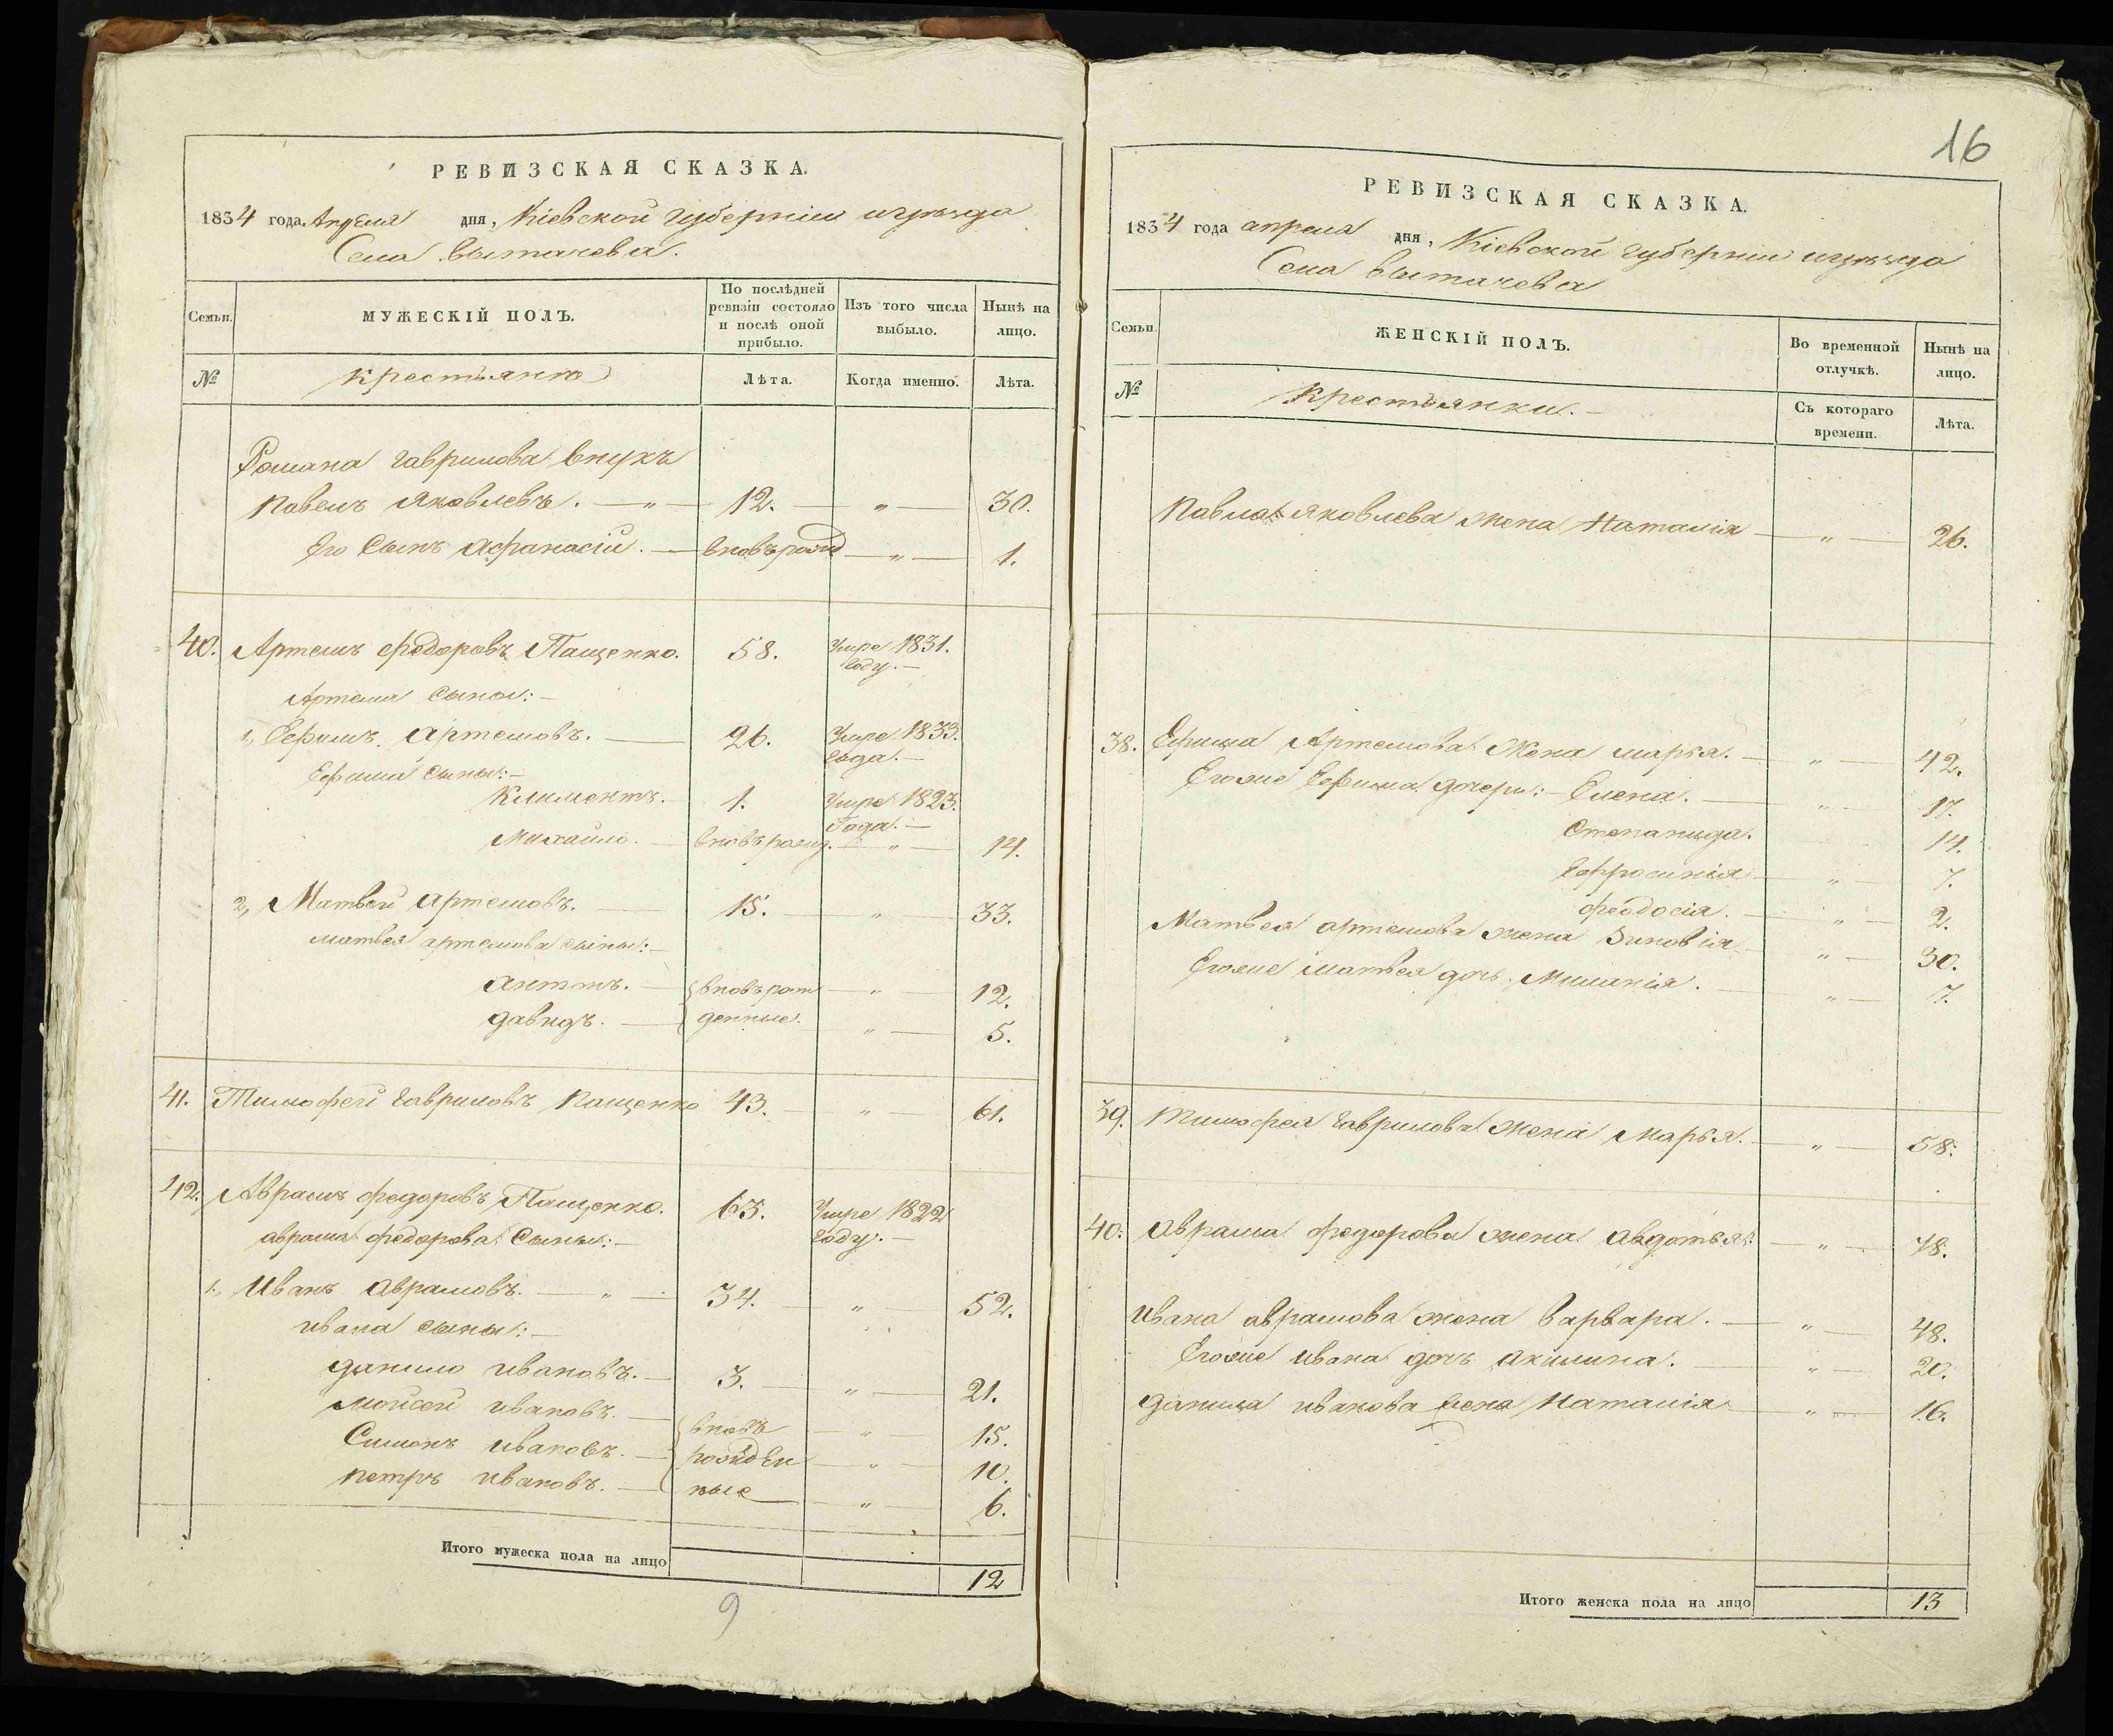 РЕВИЗСКАЯ СКАЗКА.
1834 года Апреля дня, Кіевской губерніи и уѣзда
Села Вытачева.
Семьи.
МУЖЕСКІЙ ПОЛЪ.
По послѣдней ревизіи состояло и послѣ оной прибыло.
Изъ того числа выбыло.
Нынѣ на лицо.
№
Крестьяне
Лѣта.
Когда именно.
Лѣта.
Романа Гаврилова внукъ
Павелъ Яковлевъ. — „ — 12. — „ — 30.
Его сынъ Афанасій. — вновь рожд — „ — 1.
40. Артемъ Федоровъ Пащенко. 58. Умре 1831. году. —
Артема сыны: —
1, Ефимъ Артемовъ. — 26. Умре 1833. года. —
Ефима сыны: —
Климентъ. — 1. Умре 1823. Года. —
Михайло. — вновь рожд. — „ — 14.
2, Матвей Артемовъ. — 15. — „ — 33.
Матвея Артемова сыны: —
Антонъ. — вновь рож — „ — 12.
Давидъ. — денные. „ — 5.
41. Тимофей Гавриловъ Пащенко 43. — „ — 61.
42. Аврамъ Федоровъ Пащенко. 63. Умре 1822 году. —
Аврама Федорова сыны: —
1, Иванъ Аврамовъ. — „ — 34. — „ — 52.
Ивана сыны: —
Данило Ивановъ. — 3. — „ — 21.
Мойсей Ивановъ. — вновь — „ — 15.
Симонъ Ивановъ. — рожден — „ — 10.
Петръ Ивановъ. — ные — „ — 6.
Итого мужеска пола на лицо 12
9
16
РЕВИЗСКАЯ СКАЗКА.
1834 года апреля дня, Кіевской губерніи и уѣзда
Села Вытачева
Семьи.
ЖЕНСКІЙ ПОЛЪ.
Во временной отлучкѣ.
Нынѣ на лицо.
№
Крестьянки. —
Съ котораго времени.
Лѣта.
Павла Яковлева жена Наталія — „ — 26.
38. Ефима Артемова жена Марья. — „ — 42.
Егоже Ефима дочери: — Елена. — „ — 17.
Степанида. 14.
Ефросинія — „ — 7.
Феодосія. — „ — 2.
Матвея Артемова жена Зиновія — „ — 30.
Егоже Матвея дочь Миланія. — „ — 7.
39. Тимофея Гаврилова жена Марья. — „ — 58.
40. Аврама Федорова жена Авдотья. — „ — 78.
Ивана Аврамова жена Варвара. — „ — 48.
Егоже Ивана дочь Акилина. — „ — 20.
Данила Иванова жена Наталія — „ — 16.
Итого женска пола на лицо 13